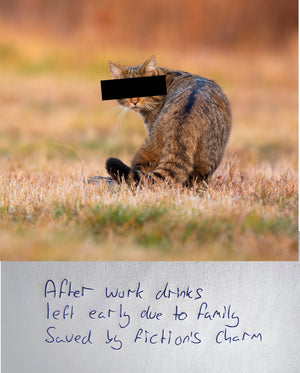 After work drinks
left early due to family
Saved by fiction's charm